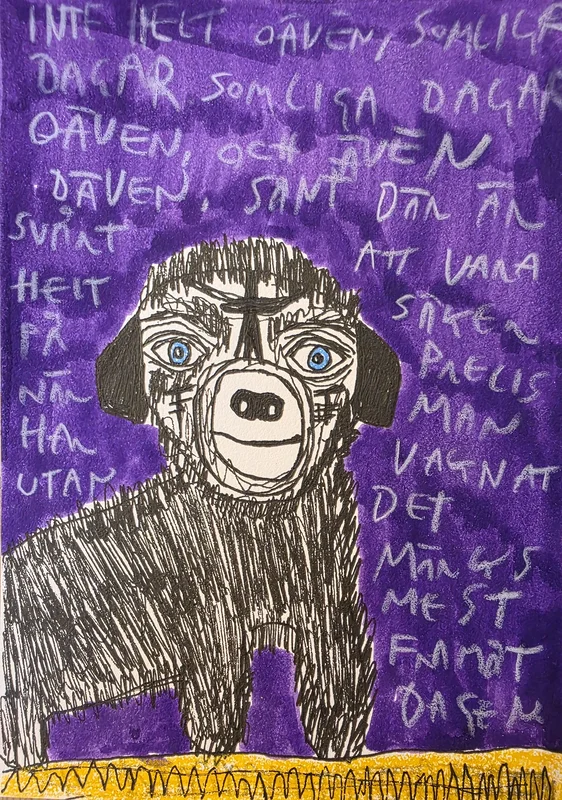 INTE HELT OÄVEN, SOMLIGA
DAGAR SOMLIGA DAGAR
OÄVEN, OCH ÄVEN
DÄVEN, SÅNT DÄR ÄR
SVÅRT ATT VARA
HELT SÄKER
PÅ PRECIS
NÄR MAN
HAR VAGNAT
UTAN DET
MÄRKS
MEST
FRAMÅT
DAGEN